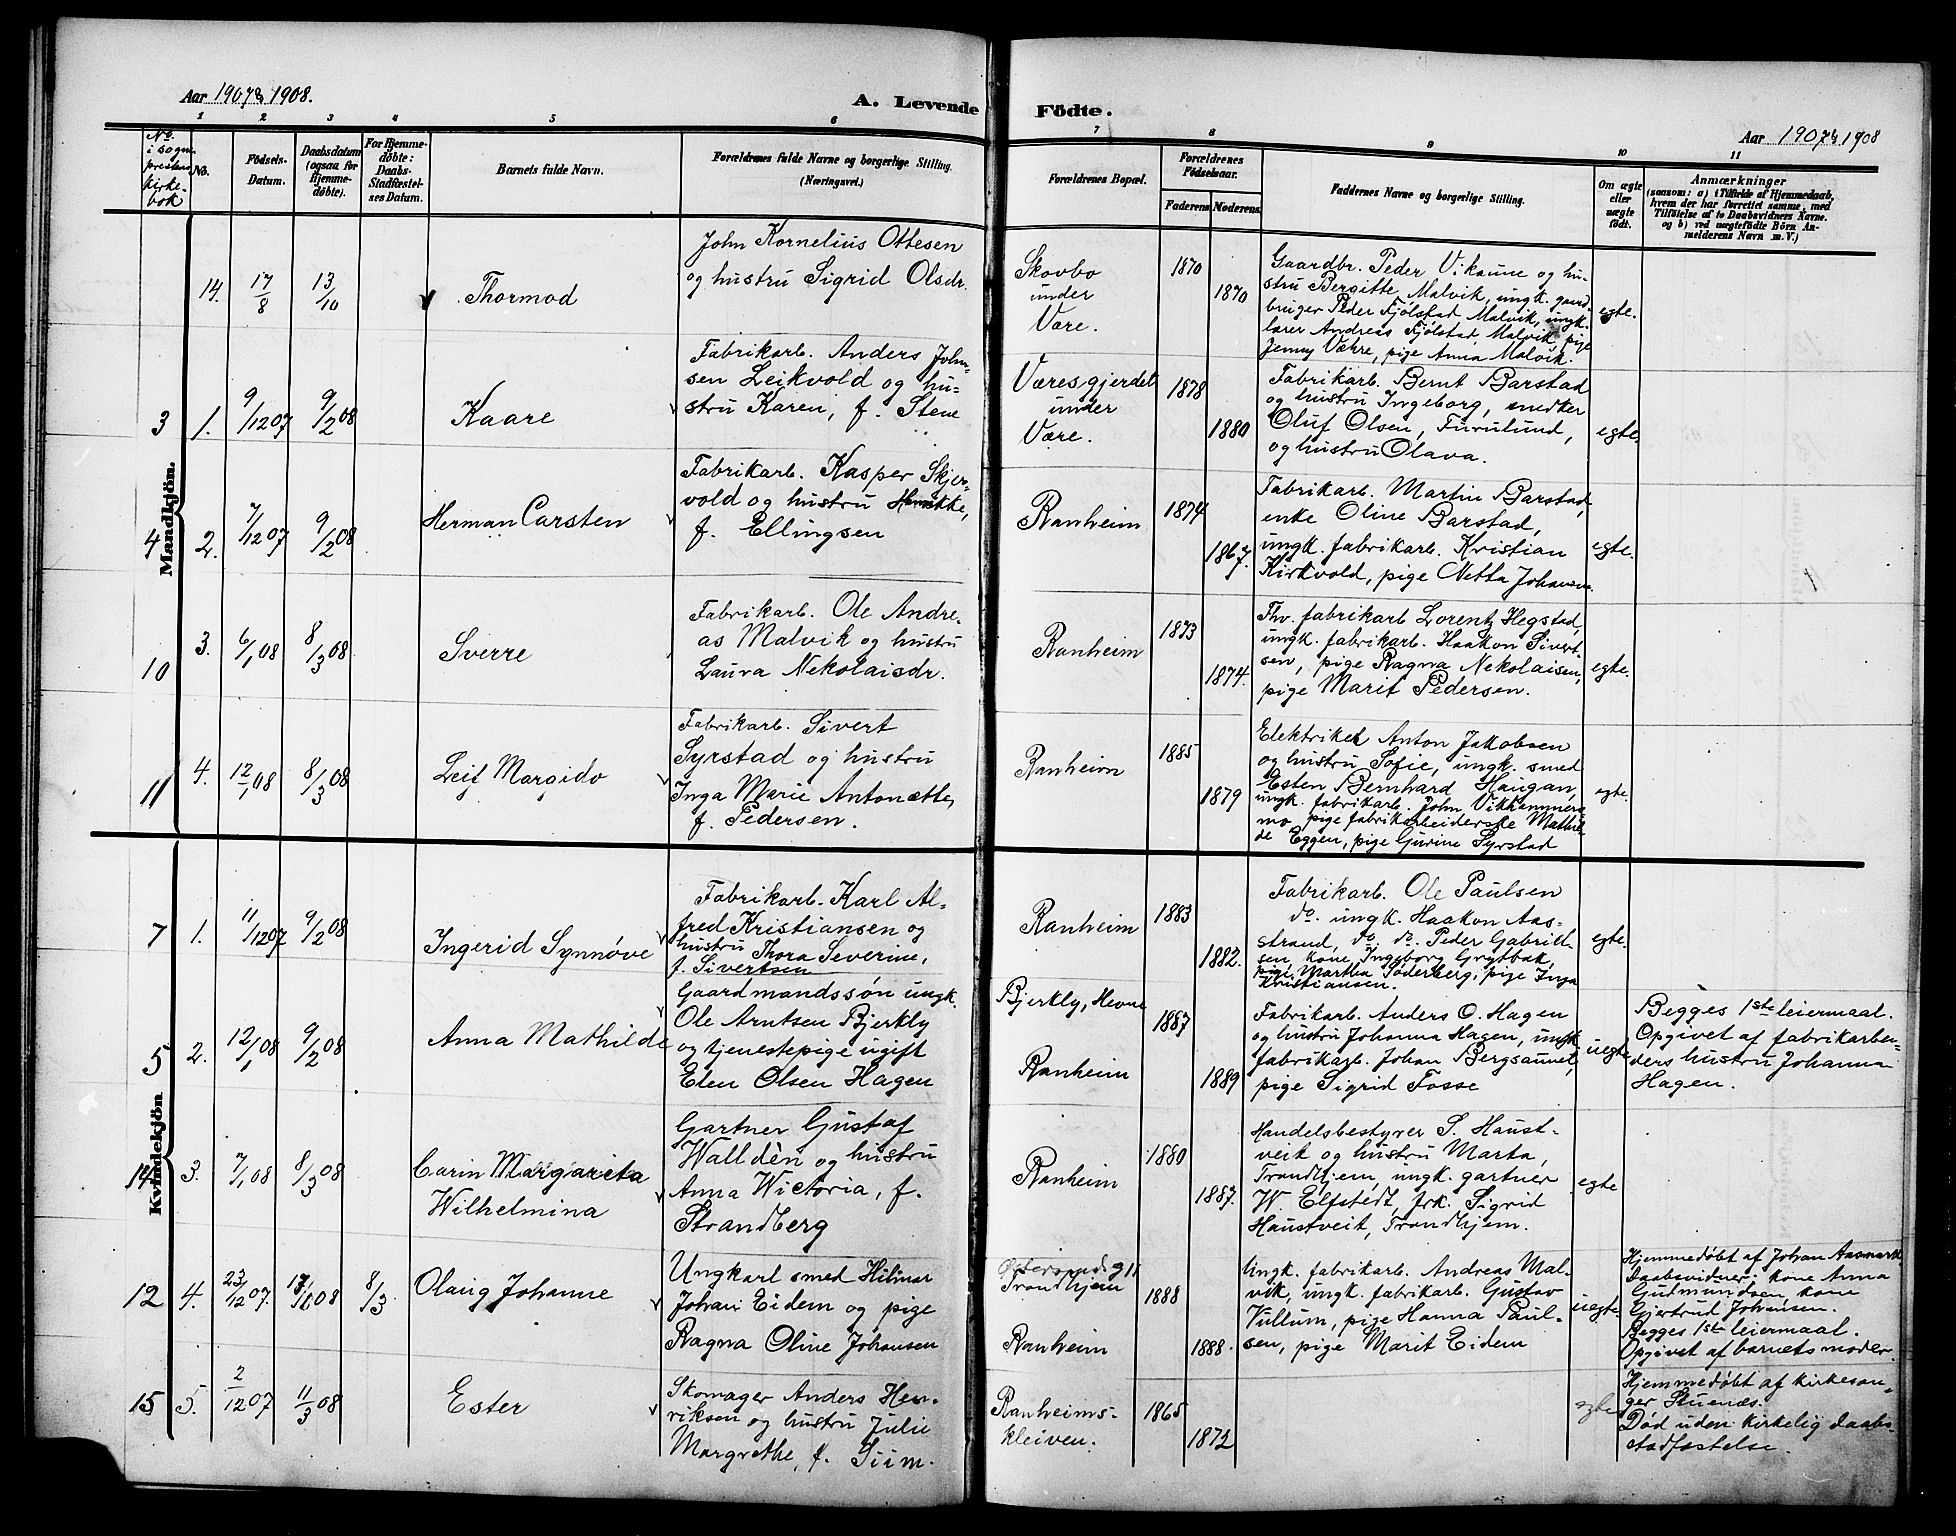 Aar 1907 & 1908.
A. Levende Födte.
Aar 1907 & 1908
1 2 3 4 5 6 7 8 9 10 11
No. i sogneprestens kirkebok
No.
Födsels-Datum.
Daabsdatum (ogsaa for Hjemmedøbte).
For Hjemmedøbte: Daabs-Stadfæstelses Datum.
Barnets fulde Navn.
Forældrenes fulde Navne og borgerlige Stilling.
(Næringsvei.)
Forældrenes Bopæl.
Forældrenes Födselsaar.
Faderens. Moderens.
Faddernes Navne og borgerlige Stilling.
Om ægte eller uægte født.
Anmærkninger
(saasom: a) i Tilfælde af Hjemmedaab, hvem der har forrettet samme, med Tilføielse af to Daabsvidners Navne. og b) ved uægtefødte Börn Anmelderens Navn m. V.)
Mandkjön.
14. 17/8 13/10 Thormod
John Kornelius Ottesen
og hustru Sigrid Olsdr.
Skovbo
under
Være.
1870
1870
Gaardbr. Peder Vikaune og hu-
stru Bergitte Malvik, ungk. gaard-
bruger Peder Fjölstad Malvik, ungk.
lærer Andreas Fjölstad Malvik, pige
Jenny Væhre, pige Anna Malvik.
egte.
3 1. 9/12 07 9/2 08 Kaare
Fabrikarb. Anders John-
sen Leikvold og hu-
stru Karen, f. Stene
Væresgjerdet
under
Være.
1878
1880
Fabrikarb. Bernt Barstad
og hustru Ingeborg, snedker
Oluf Olsen, Furulund,
og hustru Olava.
egte.
4 2. 7/12 07 9/2 08 Herman Carsten
Fabrikarb. Kasper Skjer-
vold og hustru Henrikke,
f. Ellingsen
Ranheim
1874
1867.
Fabrikarb. Martin Barstad,
enke Oline Barstad,
ungk. fabrikarb. Kristian
Kirkvold, pige Netta Johansen.
egte.
10 3. 6/1 08 8/3 08 Sverre
Fabrikarb. Ole Andre-
as Malvik og hustru
Laura Nekolaisdr.
Ranheim
1873
1874.
Fhv. fabrikarb Lorentz Hegstad,
ungk. fabrikarb. Haakon Sivert-
sen, pige Ragna Nekolaisen,
pige Marit Pedersen.
egte.
11 4. 12/1 08 8/3 08 Leif Margido
Fabrikarb. Sivert
Syrstad og hustru
Inga Marie Antonætte,
f. Pedersen.
Ranheim
1885
1879
Elektriker Anton Jakobsen
og hustru Sofie, ungk. smed
Esten Bernhard Haugan,
ungk. fabrikarb. John Vikhammers-
mo, pige fabrikarbeiderske Mathil-
de Eggen, pige Gurine Syrstad
egte.
Kvindekjön
7 1. 11/12 07 9/2 08 Ingerid Synnøve
Fabrikarb. Karl Al-
fred Kristiansen og
hustru Thora Severine,
f. Sivertsen
Ranheim
1883
1882.
Fabrikarb. Ole Paulsen
do. ungk. Haakon Aas-
strand, do. do. Peder Gabriel-
sen, kone Ingeborg Grytbak,
pige Martha Söderberg, pige Inga
Kristiansen.
egte.
5 2. 12/1 08 9/2 08 Anna Mathilde
Gaardmandssøn ungk.
Ole Arntsen Bjerkly
og tjenestepige ugift
Elen Olsen Hagen
Bjerkly, Hevne
Ranheim
1887
1889
Fabrikarb. Anders O. Hagen
og hustru Johanna Hagen, ungk.
fabrikarb. Johan Bergsaunet,
pige Sigrid Fosse
uegte
Begges 1ste leiermaal.
Opgivet af fabrikarbei-
ders hustru Johanna
Hagen.
14 3. 7/1 08 8/3 08 Carin Margareta
Wilhelmina
Gartner Gustaf
Walldèn og hustru
Anna Wictoria, f.
Strandberg
Ranheim
1880
1887.
Handelsbestyrer S. Haust-
veit og hustru Marta,
Trondhjem, ungk. gartner
W. Elfstedt, frk. Sigrid
Haustveit, Trondhjem.
egte
12 4. 23/12 07. 08 8/3 Olaug Johanne
Ungkarl smed Hilmar
Johan Eidem og pige
Ragna Oline Johansen
Trondhjem
Ranheim
1888
1888.
Ungk. fabrikarb. Andreas Mal-
vik, ungk. fabrikarb. Gustav
Vullum, pige Hanna Paul-
sen, pige Marit Eidem
uegte.
Hjemmedøbt af Johan Aasmark
Daabsvidner: kone Anna
Gudmundsen, kone
Gjertrud Johansen.
Begges 1ste leiermaal.
Opgivet af barnets moder.
15 5. 2/12 07 11/3 08 Ester
Skomager Anders Hen-
riksen og hustru Julie
Margrethe, f. Siim.
Ranheims-
kleiven.
1865
1872
egte
Hjemmedøbt af kirkesan-
ger Stuenæs.
Død uden kirkelig daabs-
stadfæstelse.